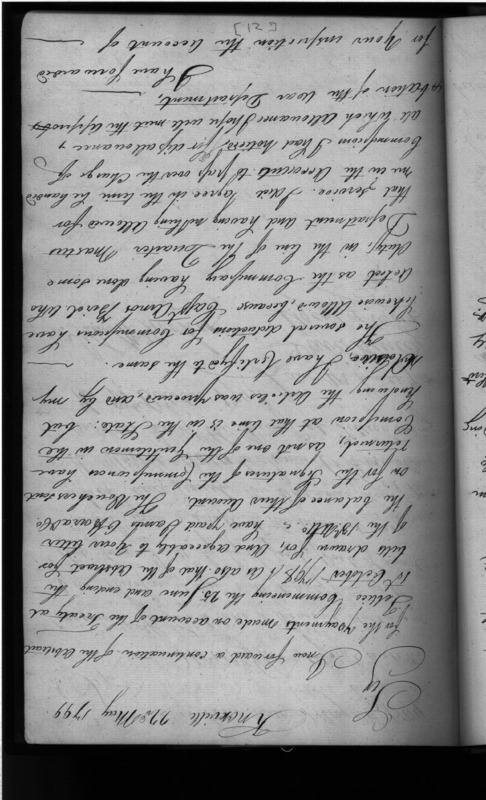 Knoxville 22nd May 1799
Sir
I now forward a continuation of the Abstract
for the payments made on account of the Treaty at
Tellico Commencing the 25 June and ending the
1st October 1798; as also that of the Abstract for
bills drawn for, And agreeable to Your letter
of the have paid James OHara & Co
the balance of their Account. The Vouchers sent
on for the Signatures of the Commissioners have
returned, as not one of the Gentlemen in the
Commission at that time is in the State: but
knowing the Articles was procured, and by my
have Certifyed to the same.
The several deductions for Commissions have
likewise allowed, because Capt Amos Bird who
acted as the Commissary having done some
duty in the line of the Quarter Master
Department and having nothing allowed for
that service. I did agree in the he handed
me in the Accounts to pass over the Charge of
Commissions I had Noticed for disallowance,
all which allowances I hope will meet the appro-
bation of the War Department,
I have forwarded
for Your inspection the Account of
[125]